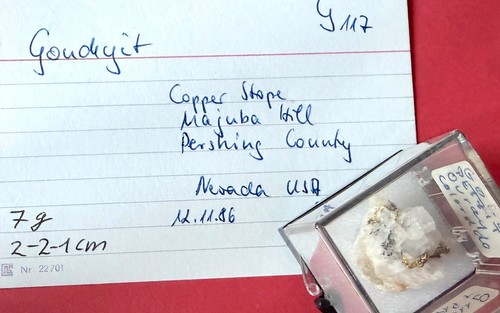 G 117
Goudeyit
Copper Stope
Majuba Hill
Pershing County
Nevada USA
7 g
12.11.86
2-2-1 cm
Nr. 22701